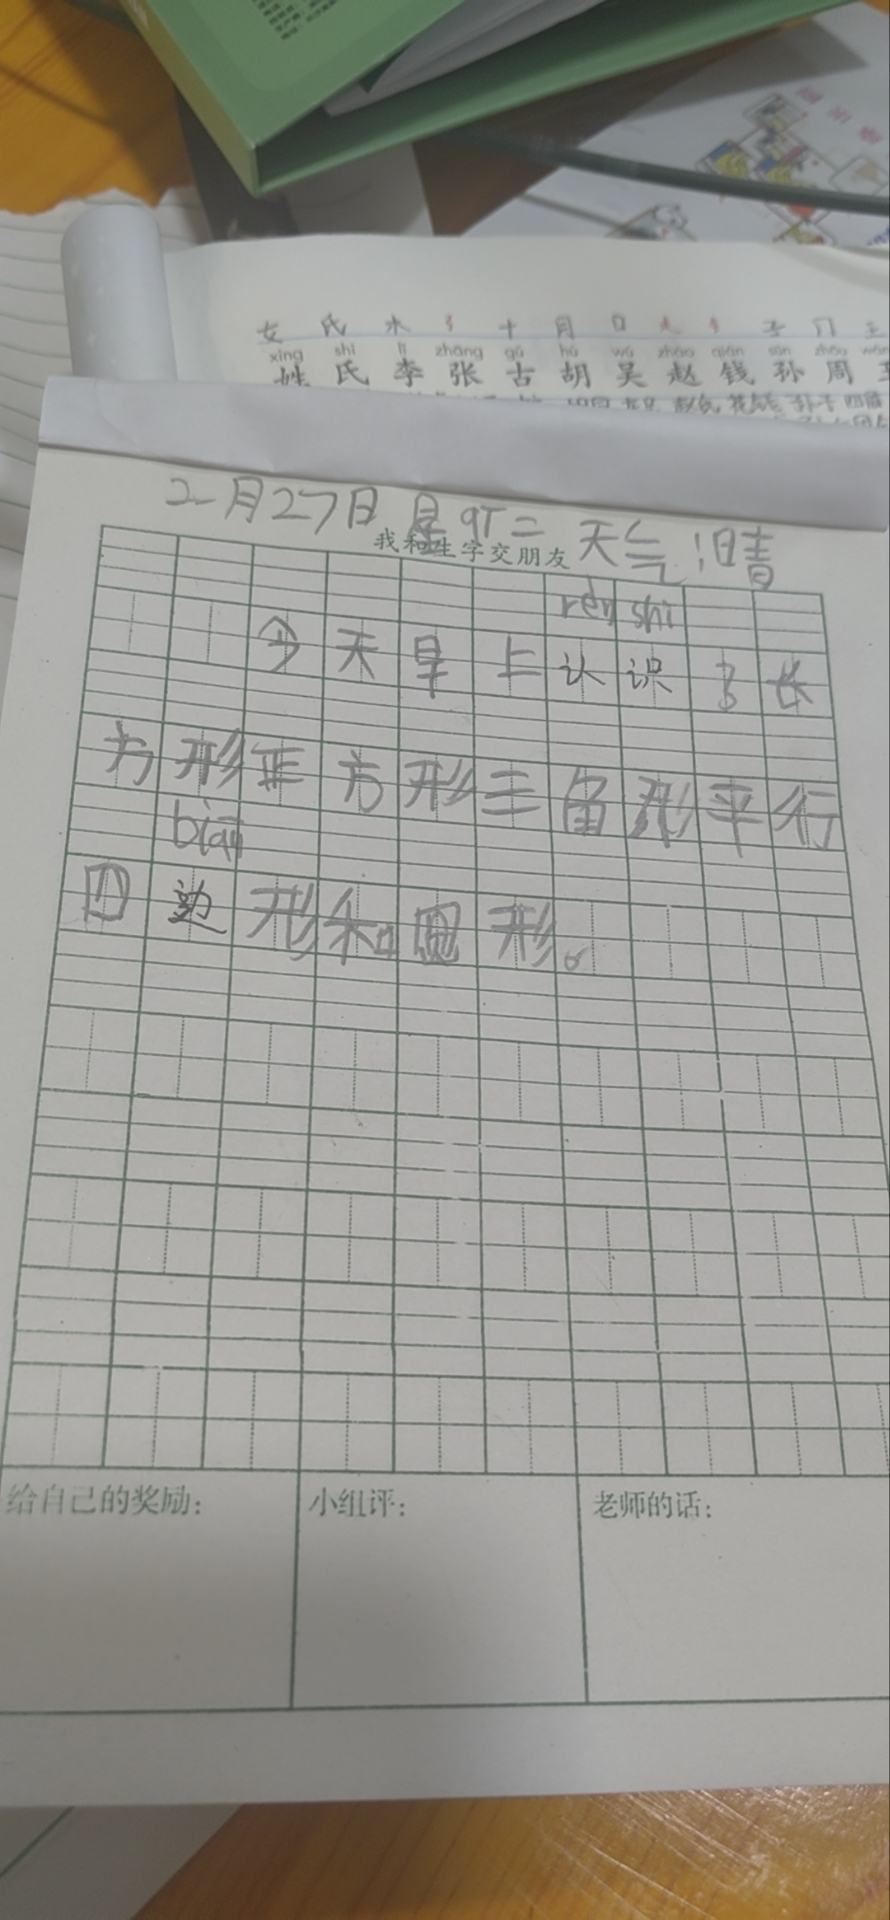 女 氏 木 弓 十 月 口 走 钅 子 门 王
xìng shì lǐ zhāng gǔ hú wú zhào qián sūn zhōu
姓 氏 李 张 古 胡 吴 赵 钱 孙 周 王
2月27日 星qT二 天气 晴
我和生字交朋友
rèn shi
今天早上认识了长
方形正方形三角形平行
biān
四边形和圆形。
给自己的奖励：
小组评：
老师的话：